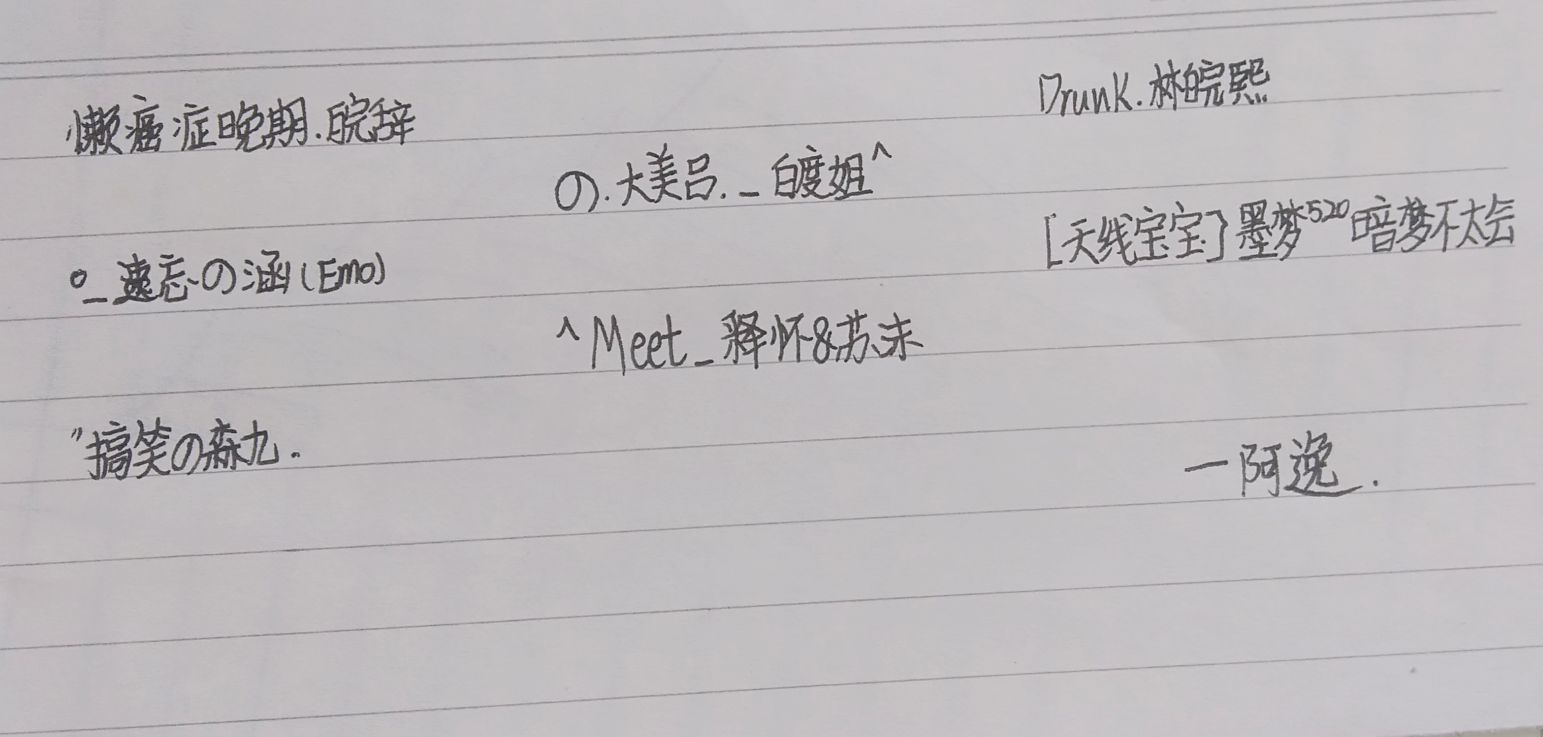 懒癌症晚期.皖辞
の.大美吕._白度姐^
Drunk.林皖熙
°_遗忘の涵(Emo)
[天线宝宝]墨梦520暗梦不太会
^Meet_释怀&苏沫
"搞笑の森九.
一阿逸.